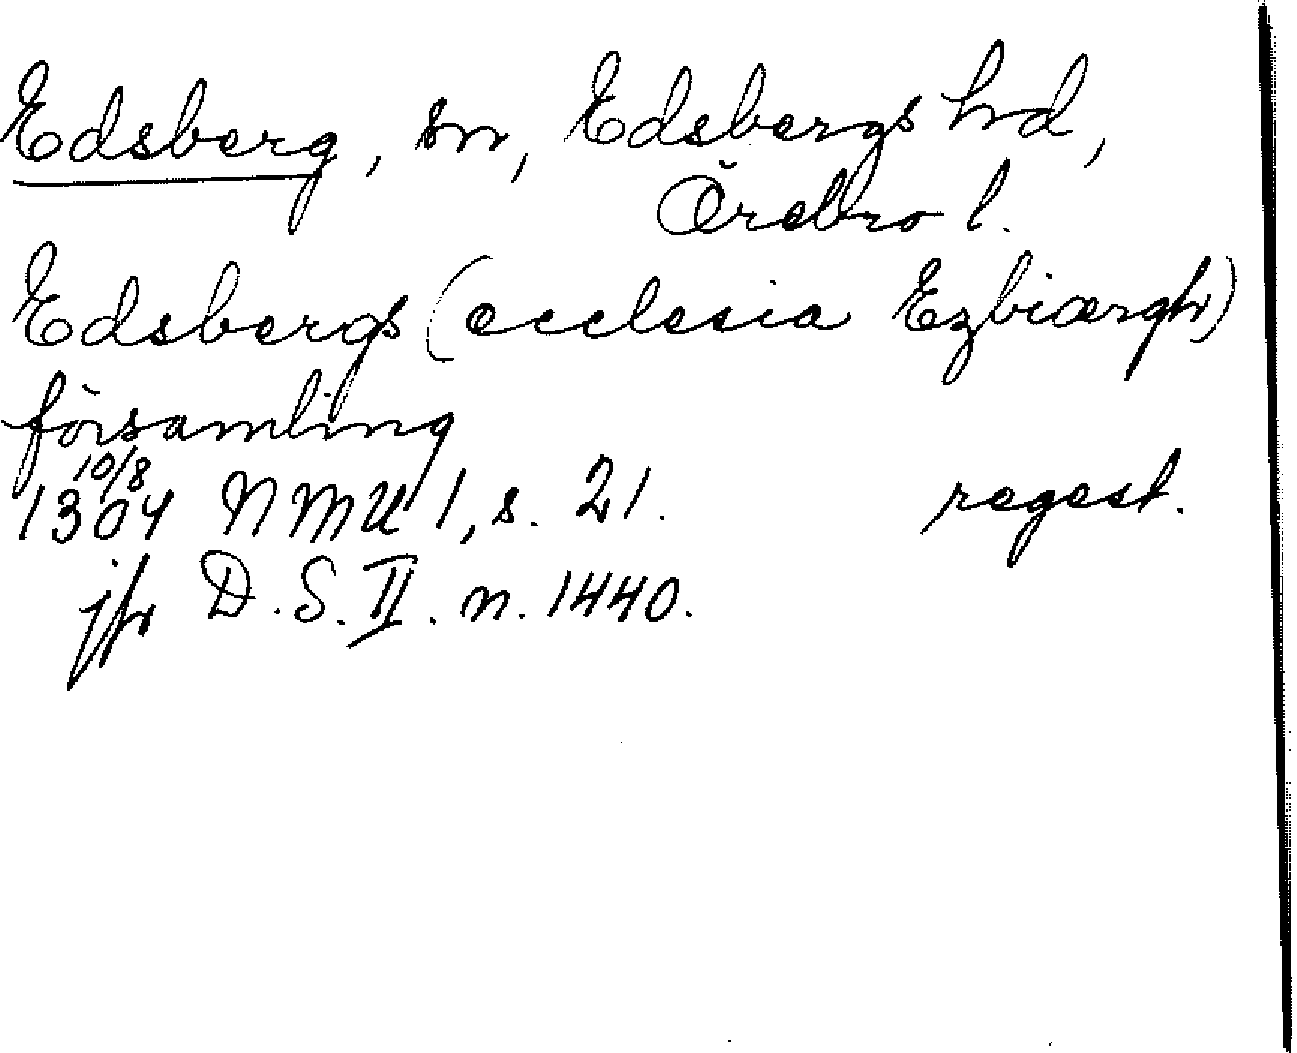 Edsberg, sn, Edsbergs hd,
Örebro l.
Edsbergs (ecclesia Ezbiærgh)
församling
10/8
1304 NMU 1, s. 21. regest.
jfr D.S. II. n. 1440.